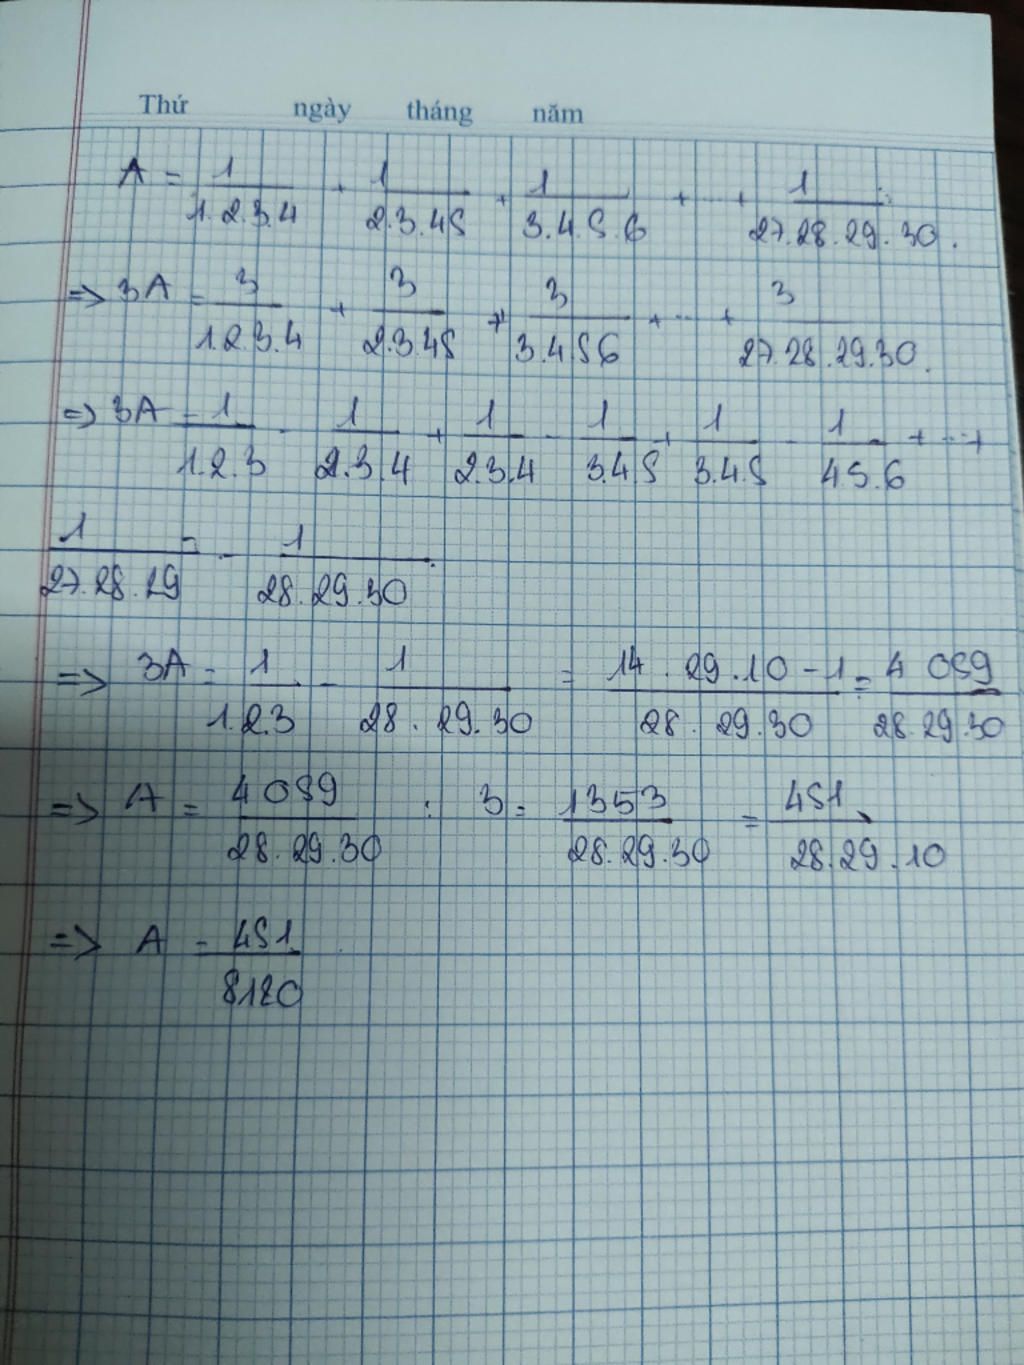 Thứ ngày tháng năm
A = 1/1.2.3.4 + 1/2.3.4.5 + 1/3.4.5.6 + ... + 1/27.28.29.30.
=> 3A = 3/1.2.3.4 + 3/2.3.4.5 + 3/3.4.5.6 + ... + 3/27.28.29.30.
=> 3A = 1/1.2.3 - 1/2.3.4 + 1/2.3.4 - 1/3.4.5 + 1/3.4.5 - 1/4.5.6 + ... +
1/27.28.29 - 1/28.29.30.
=> 3A = 1/1.2.3 - 1/28.29.30 = 14.29.10-1/28.29.30 = 4059/28.29.30
=> A = 4059/28.29.30 : 3 = 1353/28.29.30 = 451/28.29.10
=> A = 451/8120